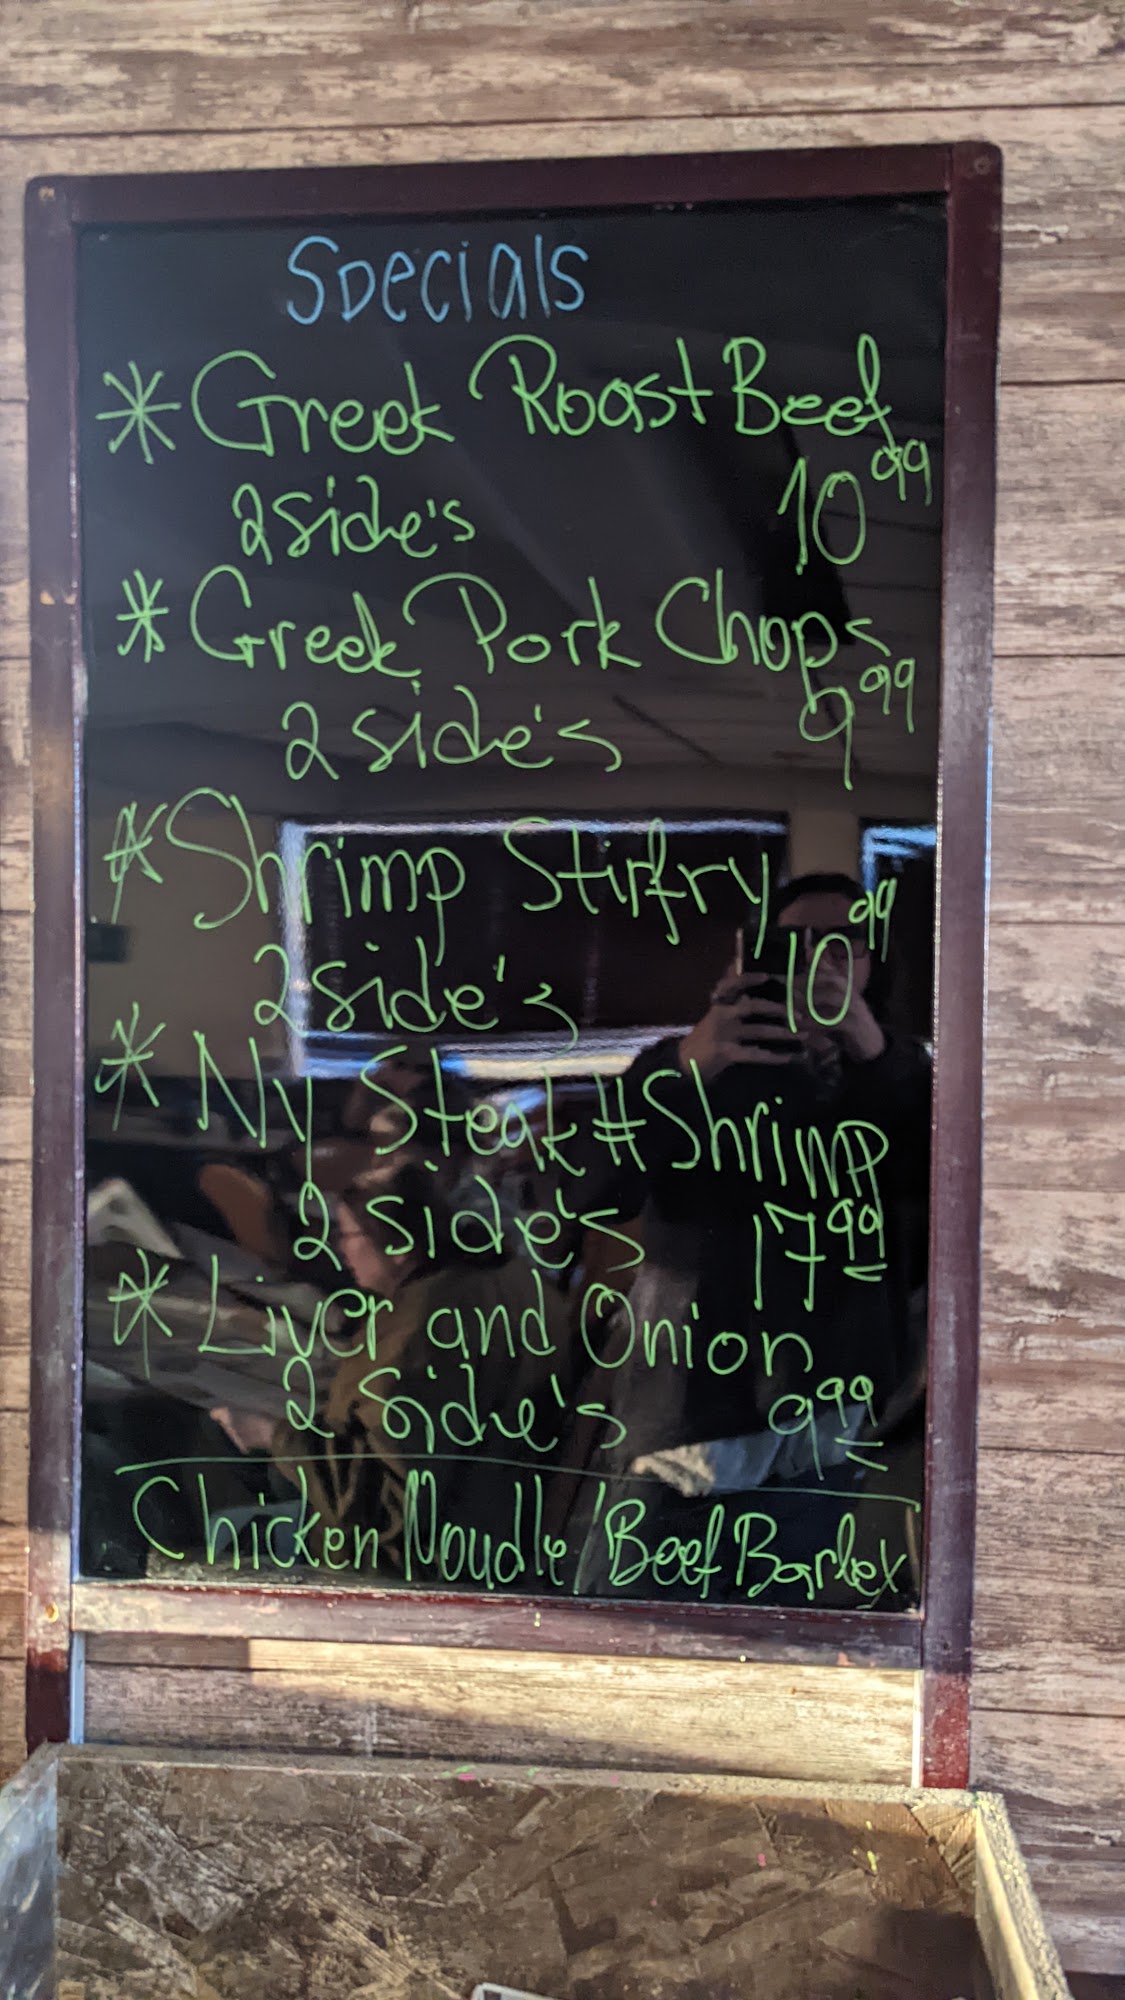 Specials
* Greek Roast Beef
2 side's 10 99
* Greek Pork Chops
2 side's 9 99
* Shrimp Stirfry
2 side's 10 99
* Ny Steak # Shrimp
2 side's 17 99
* Liver and Onion
2 side's 9 99
Chicken Noudle / Beef Barley